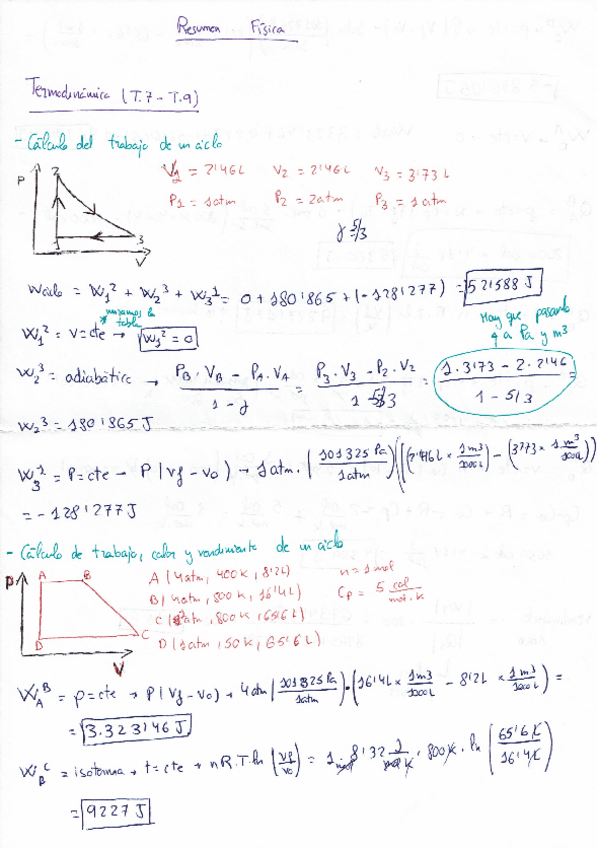 Resumen Física
Termodinámica (T.7 - T.9)
- Cálculo del trabajo de un ciclo
P 2 1 3 V
V1 = 2'46L V2 = 2'46L V3 = 3'73 L
P1 = 1atm P2 = 2atm P3 = 1atm
γ 5/3
Wciclo = W1^2 + W2^3 + W3^1 = 0 + 180'865 + (-128'277) = 52'588 J
W1^2 = V=cte → W1^2 = 0
* usamos la tabla
Hay que pasarlo a Pa y m3
W2^3 = adiabática → (PB · VB - PA · VA) / (1 - γ) = (P3 · V3 - P2 · V2) / (1 - 5/3) = (1 · 3'73 - 2 · 2'46) / (1 - 5/3) =
W2^3 = 180'865 J
W3^1 = P=cte - P(Vf - V0) → 1atm · (101325 Pa / 1atm) · ((2'46L × 1m3/1000L) - (3'73 × 1m3/1000L))
= - 128'277 J
- Cálculo de trabajo, calor y rendimiento de un ciclo
P A B D C V
A (4atm, 400K, 8'2L) n = 1mol
B (4atm, 800K, 16'4L) Cp = 5 cal/mol·K
C (1atm, 800K, 65'6L)
D (1atm, 50K, 65'6L)
WA^B = p=cte → P(Vf - V0) → 4atm (101325 Pa / 1atm) · (16'4L × 1m3/1000L - 8'2L × 1m3/1000L) =
= 3.323'46 J
WB^C = isoterma → t=cte → nR.T.ln (Vf/V0) = 1mol · 8'32 J/mol K · 800K · ln (65'6L / 16'4L)
= 9227 J